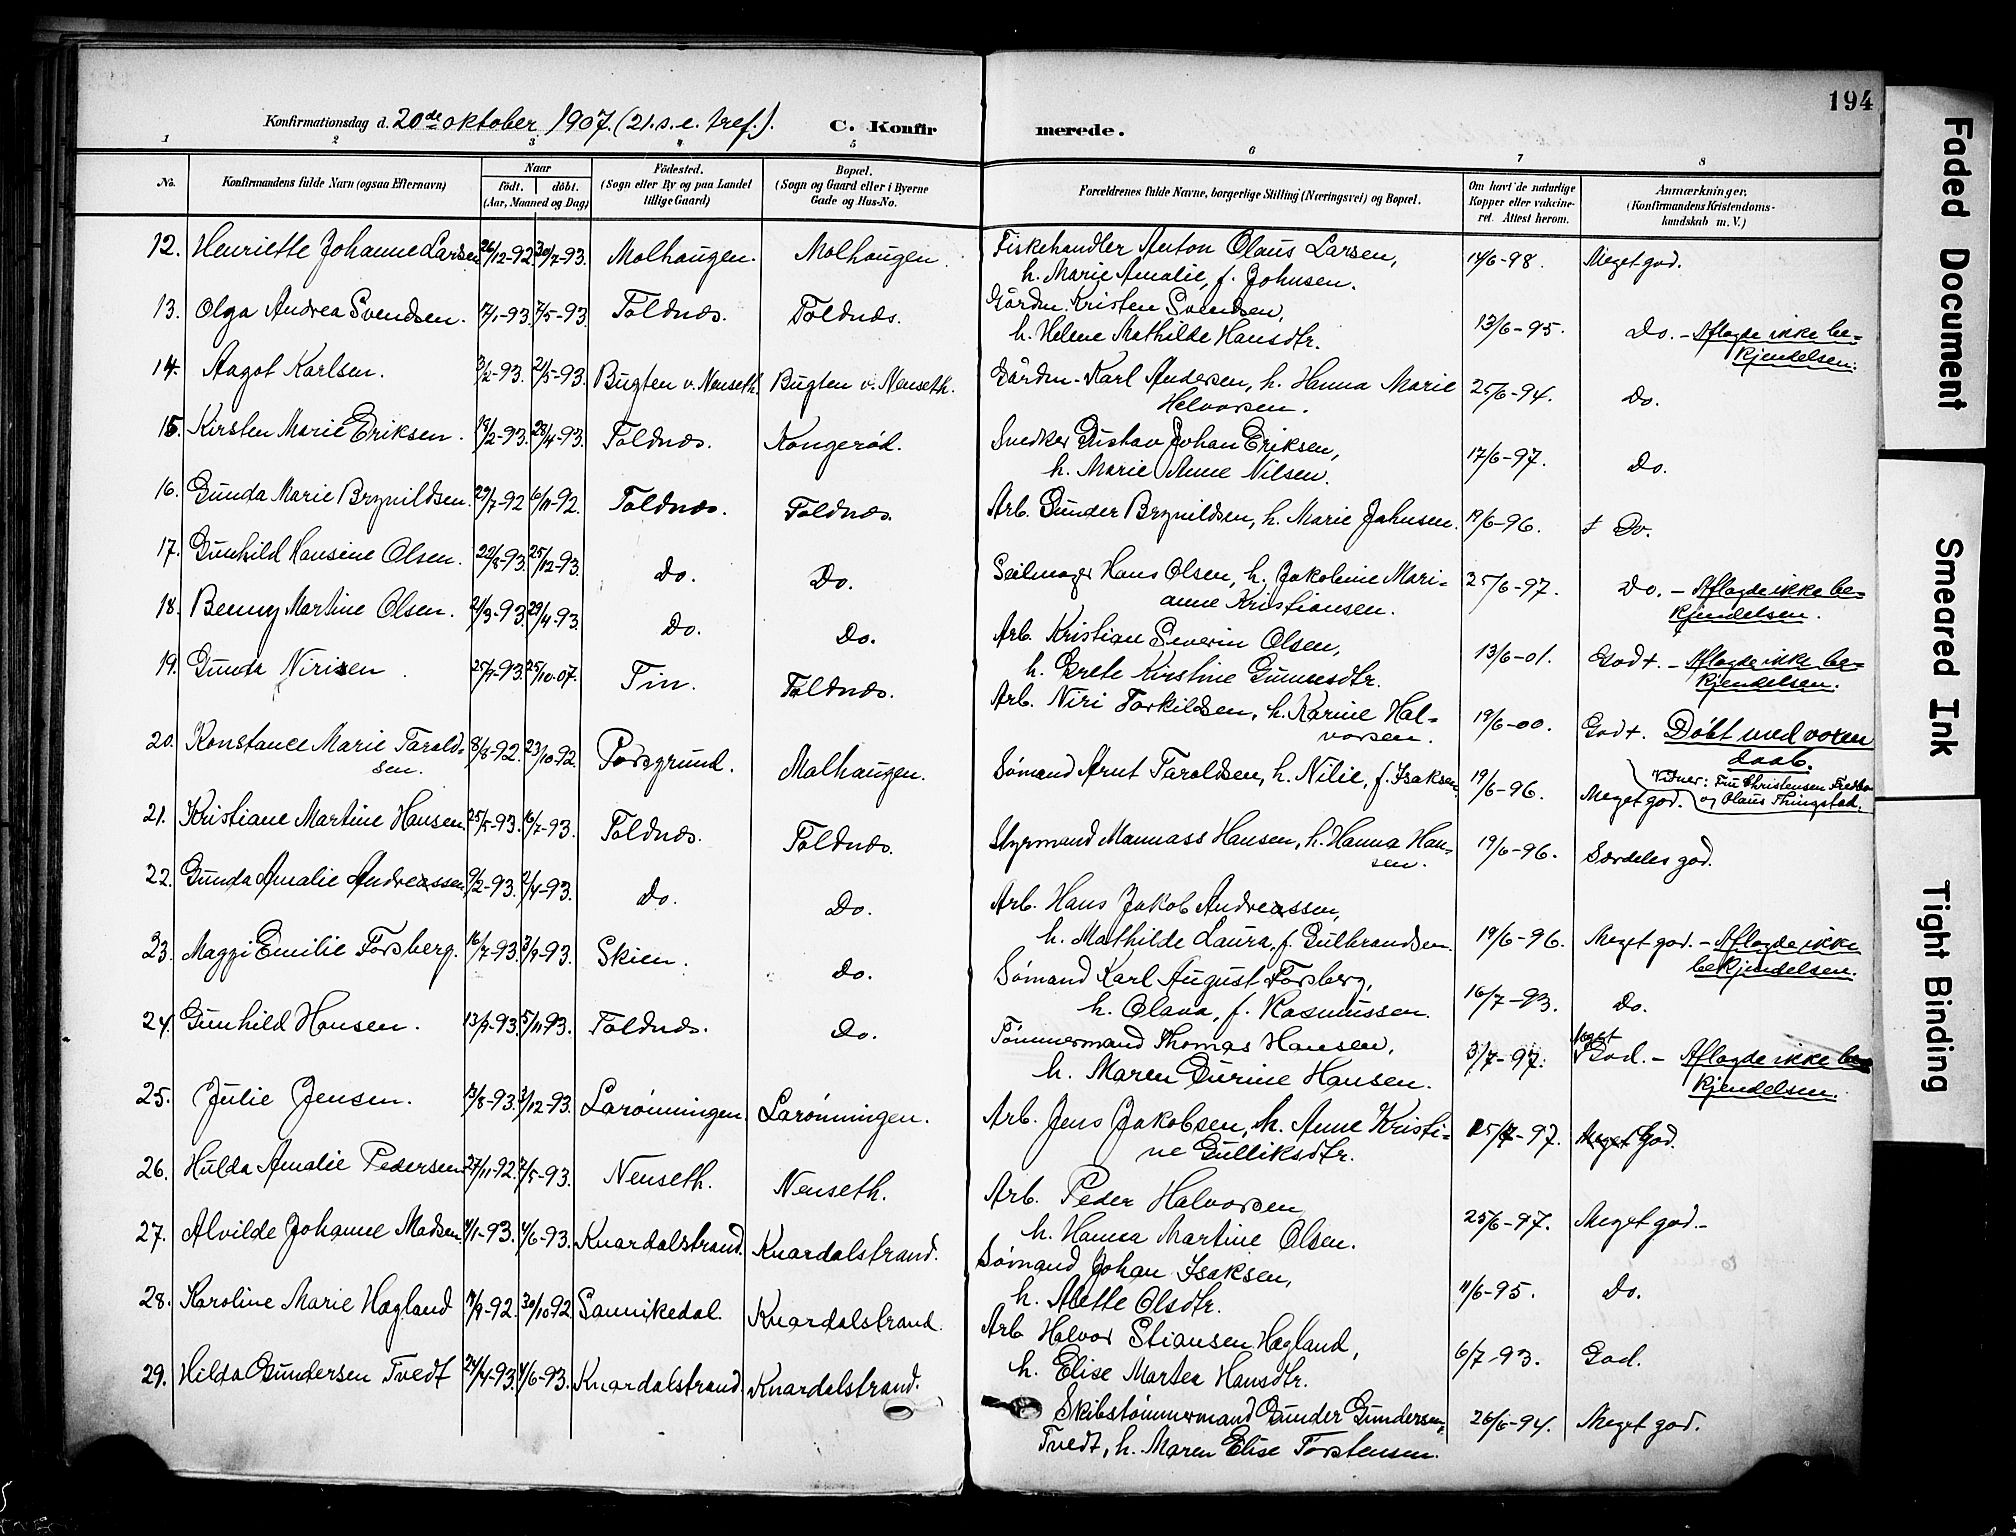 194
Konfirmationsdag d. 20de oktober 1907. (21. s. e. tref.). C. Konfirmerede.
1 2 3 4 5 6 7 8
No. Konfirmandens fulde Navn (ogsaa Efternavn) Naar født. døbt. (Aar, Maaned og Dag) Fødested. (Sogn eller By og paa Landet tillige Gaard) Bopæl. (Sogn og Gaard eller i Byerne Gade og Hus-No. Forældrenes fulde Navne, borgerlige Stilling (Næringsvei) og Bopæl. Om havt de naturlige Kopper eller vakcineret. Attest herom. Anmærkninger. (Konfirmandens Kristendomskundskab m. V.)
12. Henriette Johanne Larsen 26/12-92 30/7-93. Molhaugen. Molhaugen. Fiskehandler Anton Olaus Larsen, 14/6-98. Meget god.
h. Marie Amalie, f. Johnsen.
13. Olga Andrea Svendsen. 17/1-93. 7/5-93. Foldnæs. Foldnæs. Gårdm. Kristen Svendsen, 13/6-95. Do. - Aflagde ikke be-
h. Helene Mathilde Hansdtr. kjendelsen.
14. Aagot Karlsen. 3/2-93. 21/5-93. Bugten v. Nenseth. Bugten v. Nenseth. Gårdm. Karl Andersen, h. Hanna Marie 25/6-94. Do.
Halvorsen.
15. Kirsten Marie Eriksen. 19/2-93. 23/4-93. Foldnæs. Kongerød. Snedker Gustav Johan Eriksen, 17/6-97. Do.
h. Marie Anne Nilsen.
16. Gunda Marie Brynildsen. 29/7-92 6/11-92. Foldnæs. Foldnæs. Arb. Gunder Brynildsen, h. Marie Johnsen. 19/6-96. Do.
17. Gunhild Hansine Olsen. 22/8-93. 25/12-93. Do. Do. Seilmager Hans Olsen, h. Jakobine Mari- 25/6-97. Do. - Aflagde ikke be-
anne Kristiansen. kjendelsen.
18. Benny Martine Olsen. 2/3-93. 29/4-93. Do. Do. Arb. Kristian Severin Olsen, 13/6-01. Godt. - Aflagde ikke be-
h. Grete Kirstine Gunnesdtr. kjendelsen.
19. Gunda Nirisen. 25/9-93. 25/10-07. Tin. Foldnæs. Arb. Niri Torkildsen, h. Karine Hal- 19/6-00. Godt. Døbt med voxen
vorsen. daab.
Vidner: Fru Christensen
og Olaus Thingstad.
20. Konstance Marie Tarald- 8/8-92. 23/10-92. Porsgrund. Molhaugen. Sømand Arnt Taroldsen, h. Nilie, f. Isaksen. 19/6-96. Meget god.
sen.
21. Kristiane Martine Hansen. 25/5-93. 16/7-93. Foldnæs. Foldnæs. Styrmand Mannass Hansen, h. Hanna Han- 19/6-96. Særdeles god.
sen.
22. Gunda Amalie Andreassen. 9/2-93. 2/4-93. Do. Do. Arb. Hans Jakob Andreassen, 19/6-96. Meget god. - Aflagde ikke
h. Mathilde Laura, f. Gulbrandsen. bekjendelsen.
23. Maggi Emilie Forsberg. 16/7-93. 3/9-93. Skien. Do. Sømand Karl August Forsberg, 16/7-93. Do.
h. Olava, f. Rasmussen.
24. Gunhild Hansen. 13/9-93. 5/11-93. Foldnæs. Do. Tømmermand Thomas Hansen, 3/7-97. Noget God. - Aflagde ikke be-
h. Maren Gurine Hansen. kjendelsen.
25. Julie Jensen. 13/8-93. 3/12-93. Larønningen. Larønningen. Arb. Jens Jakobsen, h. Anne Kristi- 25/7-97. Meget God.
ne Gulliksdtr.
26. Hulda Amalie Pedersen. 27/11-92. 7/5-93. Nenseth. Nenseth. Arb. Peder Halvorsen 25/6-97. Meget god.-
h. Hanna Martine Olsen.
27. Alvilde Johanne Madsen. 11/1-93. 4/6-93. Knardalstrand. Knardalstrand. Sømand Johan Isaksen, 11/6-95. Do.
h. Alette Olsdtr.
28. Karoline Marie Hægland 17/9-92. 30/10-92. Sannikedal. Knardalstrand. Arb. Halvor Stiansen Hægland, 6/7-93. God.
h. Elise Martea Hansdtr.
29. Hilda Gundersen Tvedt 24/4-93. 4/6-93. Knardalstrand. Knardalstrand. Skibstømmermand Gunder Gundersen 26/6-94. Meget god.
Tvedt, h. Maren Elise Torstensen.
Faded Document
Smeared Ink
Tight Binding